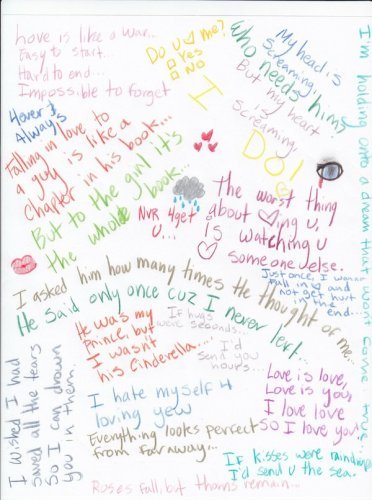 Love is like a war...
Easy to start...
Hard to end...
Impossible to forget
Do u me?
Yes
No
I
DO!
My head is
Screaming,
Who needs him?
But my heart
is
Screaming,
I'm holding onto a dream that won't come true
4ever &
Always
Falling in love to
a guy is like a
chapter in his book...
But to the girl it's
the whole book...
Nvr 4get
u...
the worst thing
about ing u,
Is watching u
someone else.
Just once, I wanna
fall in and
not get hurt
in the end...
I asked him how many times He thought of me.
He said only once cuz I never left...
He was my
Prince, but
I wasn't
his Cinderella...
If hugs
were seconds...
I'd
send you
hours...
I wished I had
saved all the tears
So I can drown
you in them.
I hate myself 4
loving yew
Everything looks perfect
from far away...
Love is love,
Love is you,
I love love
So I love you
If kisses were raindrops
I'd send u the sea.
Roses fall, but thorns remain...